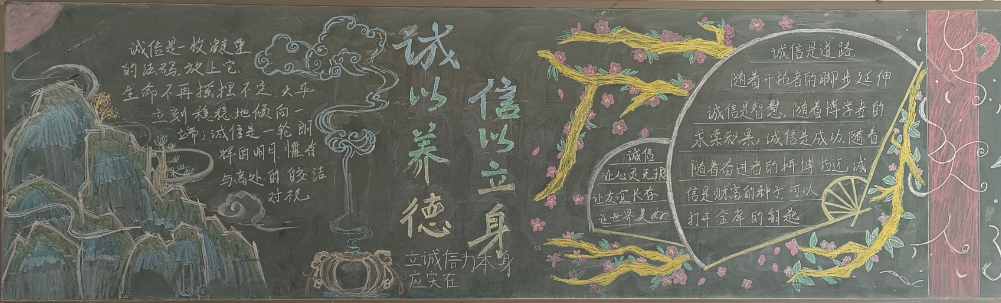 诚信是一枚凝重
的法码，放上它，
生命不再摇摆不定，天平
立刻稳稳地倾向
一端；诚信是一轮朗
照的明月，惟有
与高处的皎洁
对视
诚以养德
信以立身
立诚信为本身
应实在
诚信
让心灵无
让友谊长存
让世界美好
诚信是道路
随着开拓者的脚步延伸
诚信是智慧，随着博学者的
求索积累，诚信是成功，随着
随着奋进者的拼搏临近，诚
信是财富的种子，可以
打开金库的钥匙